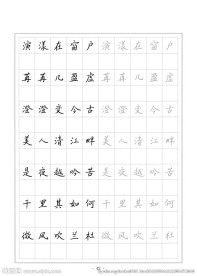 演漾在窗户演漾在窗户
苒苒几盈虚苒苒几盈虚
澄澄变今古澄澄变今古
美人清江畔美人清江畔
是夜越吟苦是夜越吟苦
千里其如何千里其如何
微风吹兰杜微风吹兰杜